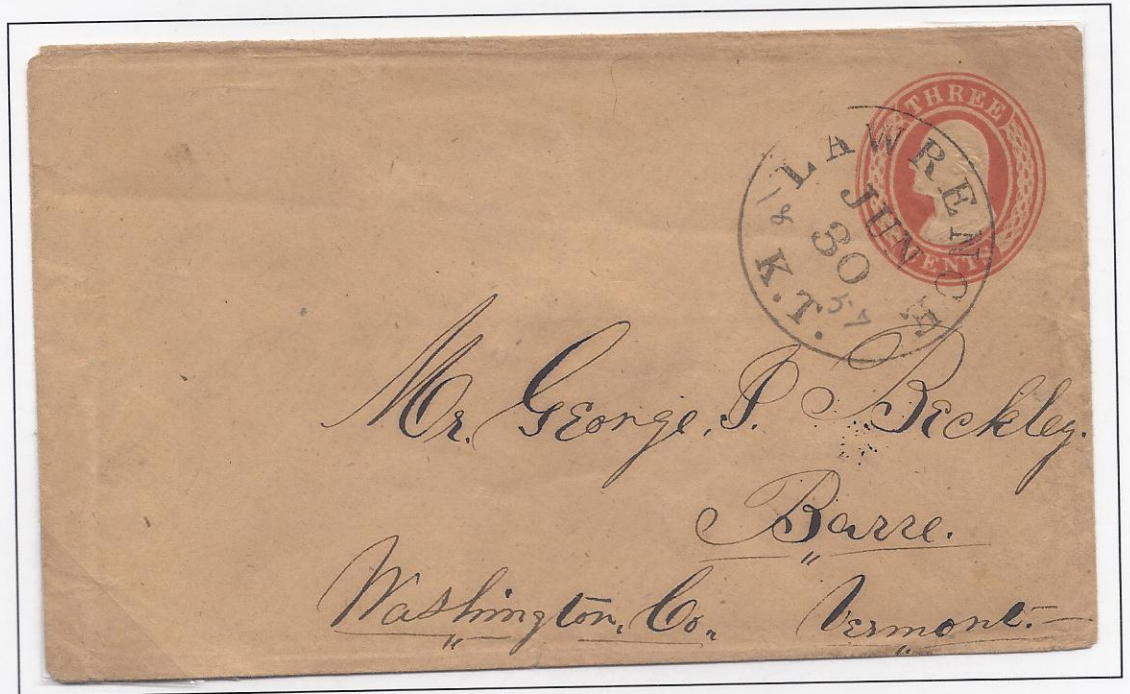 THREE
CENTS
LAWRENCE
JUN
30
18 57
K.T.
Mr. George, P. Beckley.
Barre.
Washington, Co. Vermont.